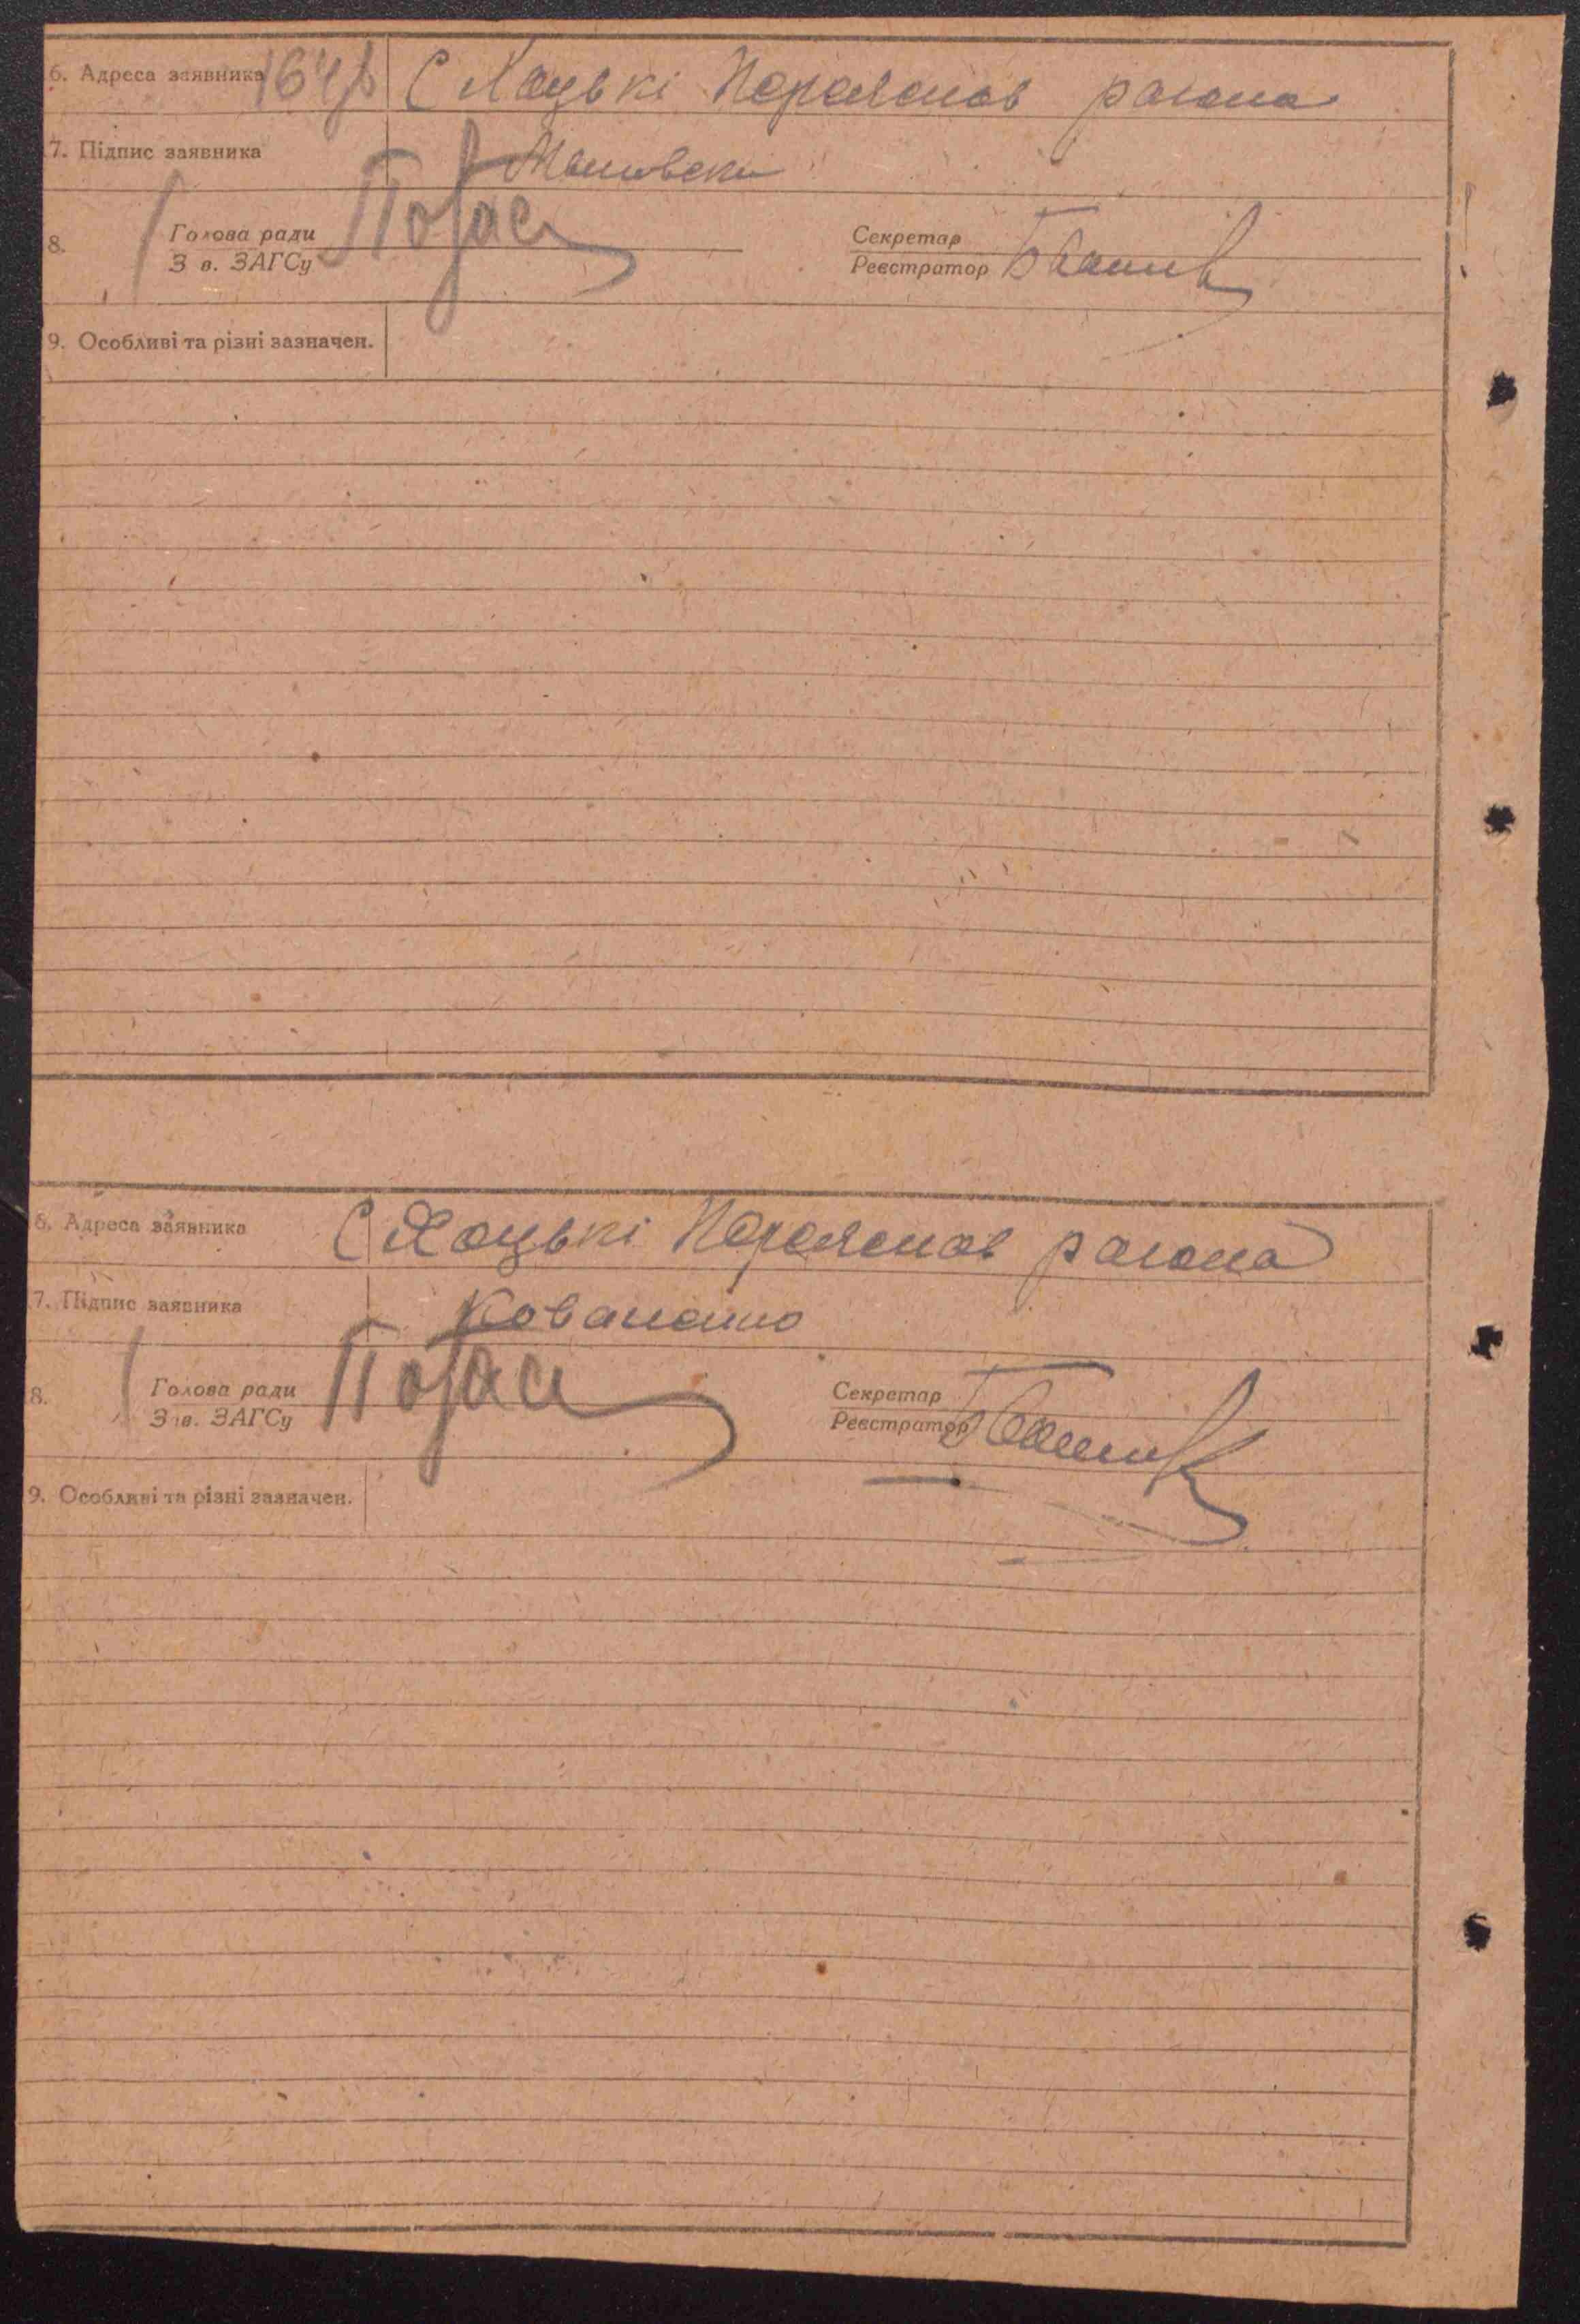 6. Адреса заявника С Хоцькі Переяслав района
7. Підпис заявника
8. Голова ради Секретар
З в. ЗАГСу Реєстратор
9. Особливі та різні зазначен.
6. Адреса заявника С Хоцькі Переяслав района
7. Підпис заявника Коваленко
8. Голова ради Секретар
З в. ЗАГСу Реєстратор
9. Особливі та різні зазначен.